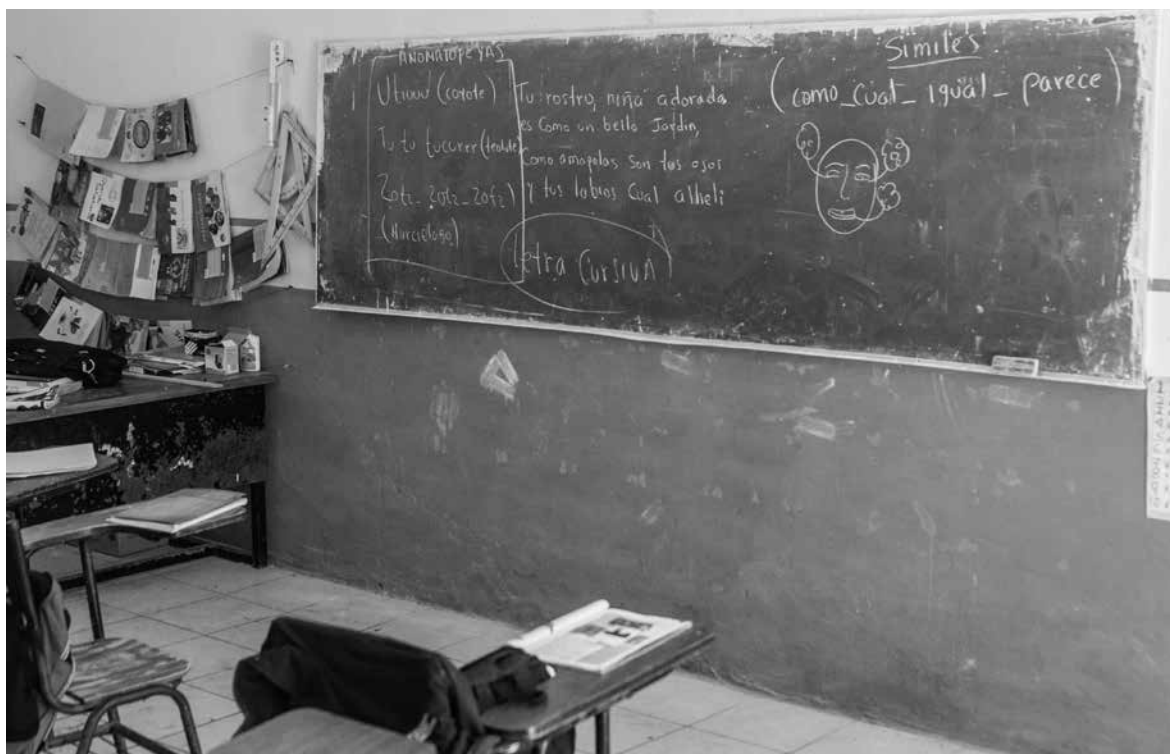 ANOMATOPEYAS
Utiuuu (coyote)
Tu tu tucurrr (tecolote)
Zotz_Zotz_Zotz)
(Murcielago)
Tu rostro, niña adorada
es Como un bello Jardin,
Como amapolas son tus ojos
y tus labios Cual alheli
letra CursivA
Simíles
(como_Cual_igual_parece)